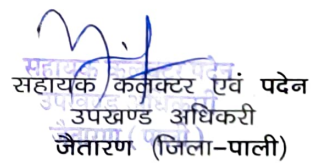 सहायक कलक्टर एवं पदेन
उपखण्ड अधिकरी
जैतारण (जिला-पाली)